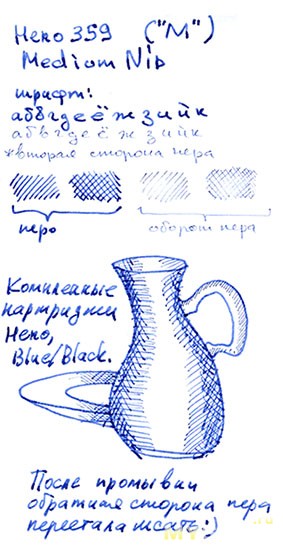 Hero 359 ("M")
Medium Nib
шрифт:
абвгдеёжзийк
абвгдеёжзийк
*вторая сторона пера
перо оборот пера
Комплектные
картриджи
Hero,
Blue/Black.
После промывки
обратная сторона пера
перестала писать:)